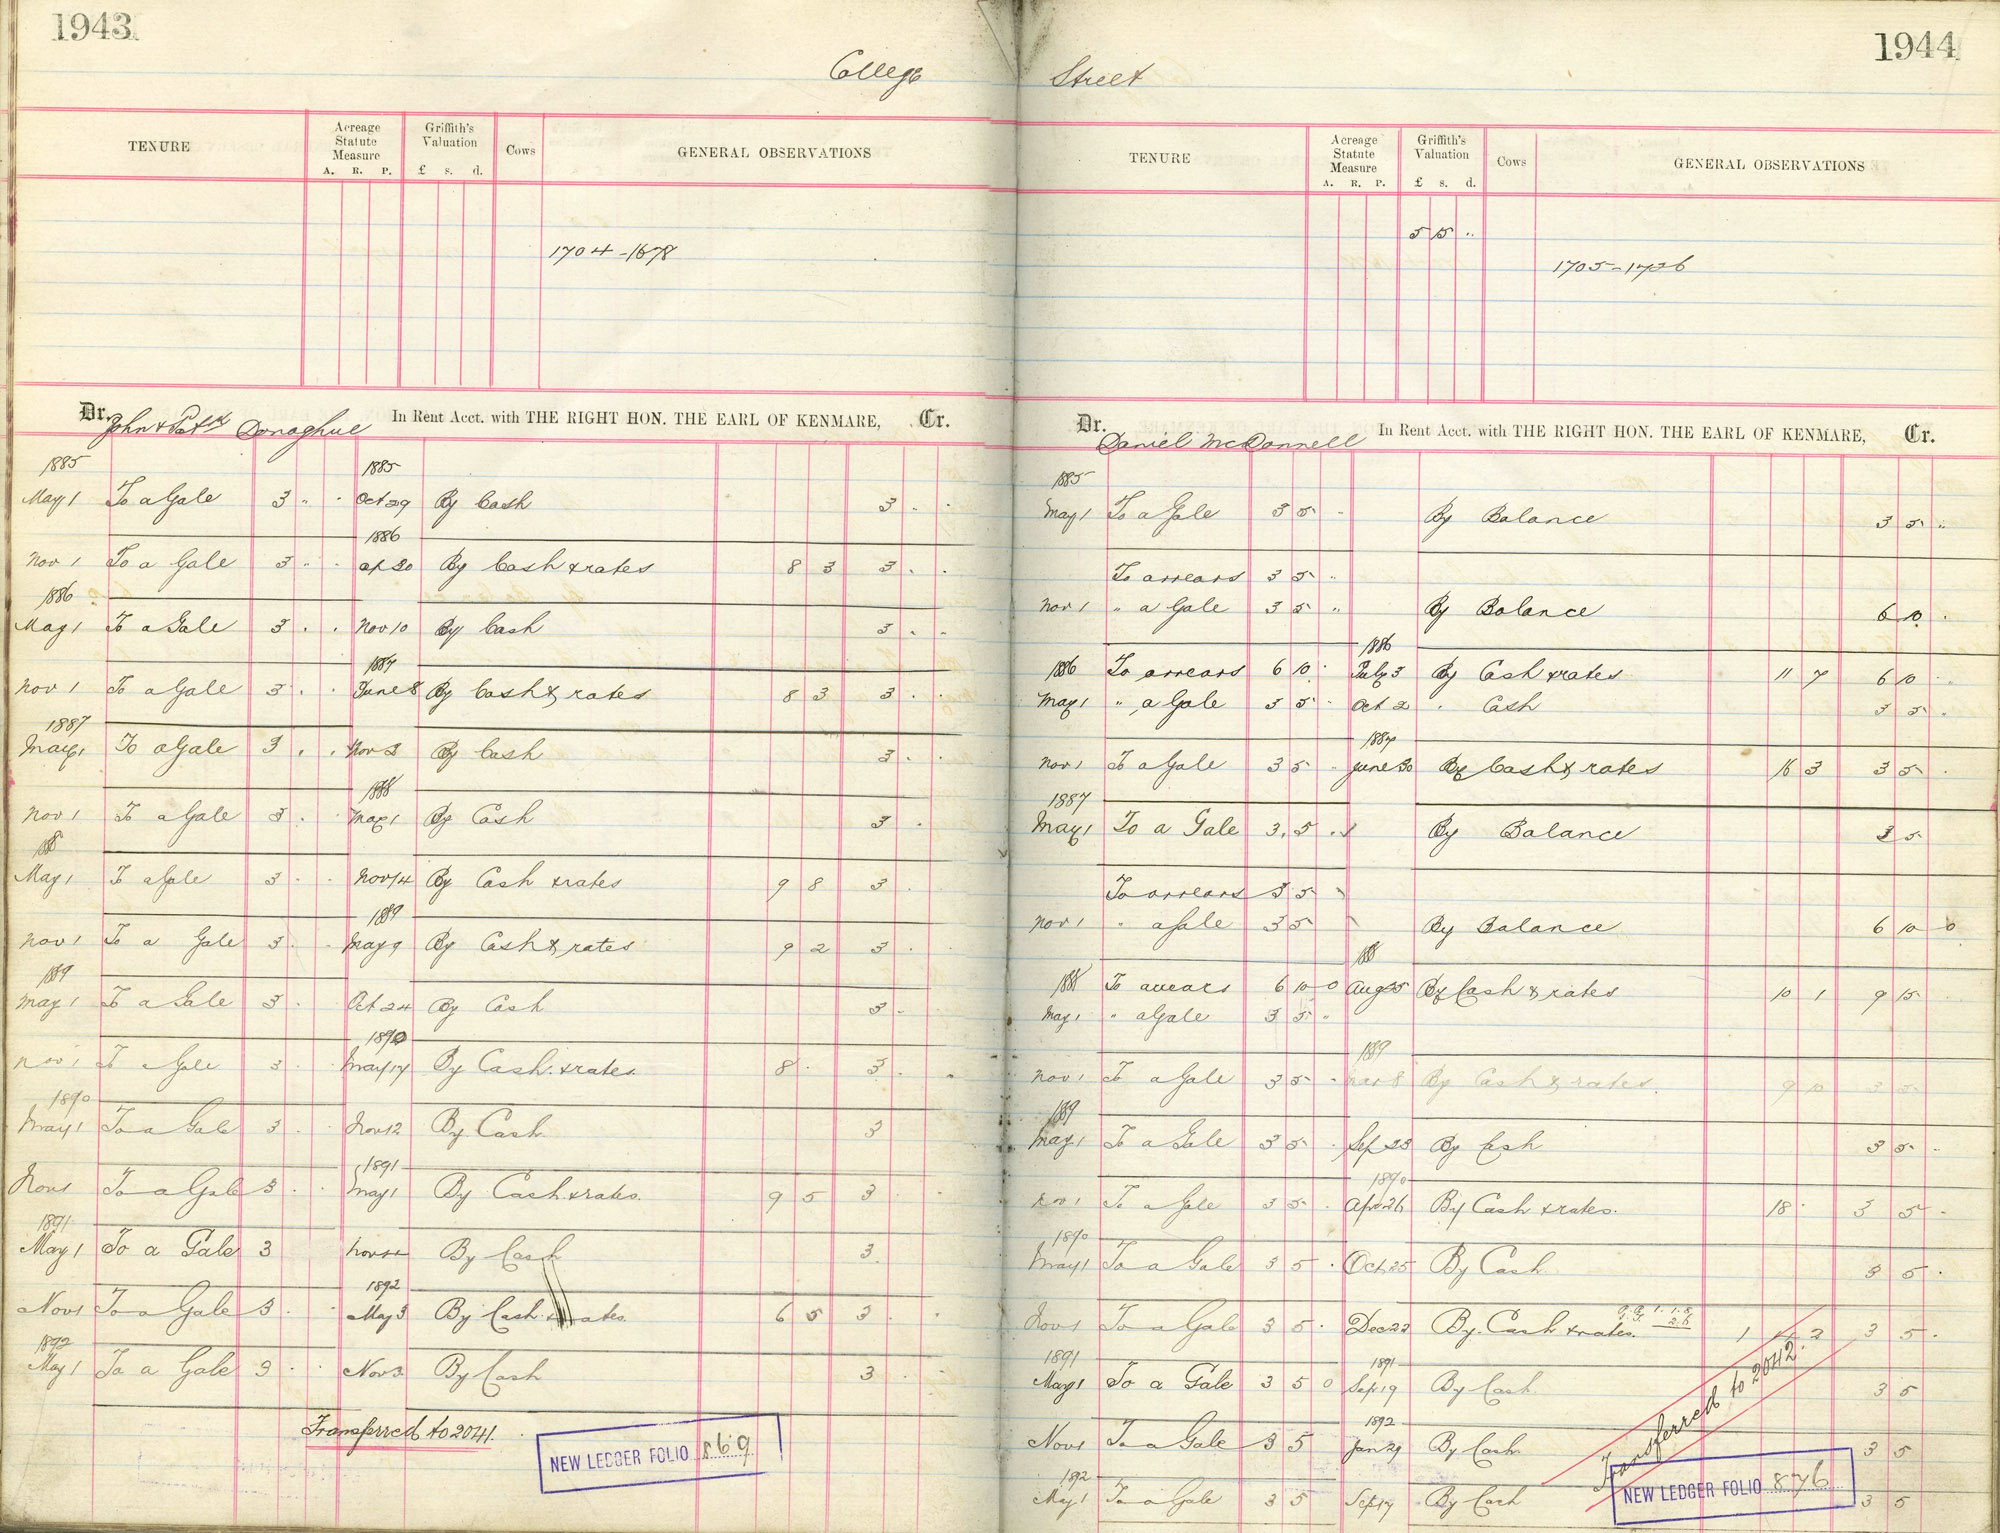 1943
College
TENURE Acreage Statute Measure A. R. P. Griffith's Valuation £ s. d. Cows GENERAL OBSERVATIONS
1704-1678
Dr. John & Patk Donoghue In Rent Acct. with THE RIGHT HON. THE EARL OF KENMARE, Cr.
1885 1885
May 1 To a Gale 3 " " Oct 29 By Cash 3 . .
1886
Nov 1 To a Gale 3 . . ap 20 By Cash & rates 8 3 3 . .
1886
May 1 To a Gale 3 . . Nov 10 By Cash 3 . .
1887
Nov 1 To a Gale 3 . . June 8 By Cash & rates 8 3 3 . .
1887
May 1 To a Gale 3 . . Nov 2 By Cash 3 . .
1888
Nov 1 To a Gale 3 . . May 1 By Cash 3 .
188
May 1 To a Gale 3 . . Nov 14 By Cash & rates 9 8 3 .
1889
Nov 1 To a Gale 3 . . May 9 By Cash & rates 9 2 3 .
1889
May 1 To a Gale 3 . . Oct 24 By Cash 3 .
1890
Nov 1 To a Gale 3 . . May 17 By Cash & rates 8 . 3 .
1890
May 1 To a Gale 3 . . Nov 12 By Cash 3
1891
Nov 1 To a Gale 3 . . May 1 By Cash & rates. 9 5 3 .
1891
May 1 To a Gale 3 Nov By Cash 3
1892
Nov 1 To a Gale 3 . . May 3 By Cash & rates. 6 5 3 .
1892
May 1 To a Gale 3 . . Nov 3 By Cash 3 .
Transferred to 2041.
NEW LEDGER FOLIO 869
1944
Street
TENURE Acreage Statute Measure A. R. P. Griffith's Valuation £ s. d. Cows GENERAL OBSERVATIONS
5 15 "
1705-1726
Dr. Daniel McDonnell In Rent Acct. with THE RIGHT HON. THE EARL OF KENMARE, Cr.
1885
May 1 To a Gale 3 5 " By Balance 3 5 "
To arrears 3 5 "
Nov 1 " a Gale 3 5 " By Balance 6 10 .
1886
1886 To arrears 6 10 . July 3 By Cash & rates 11 7 6 10 .
May 1 " a Gale 3 5 . Oct 2 " Cash 3 5 .
1887
Nov 1 To a Gale 3 5 . June 30 By Cash & rates 16 3 3 5 .
1887
May 1 To a Gale 3 . 5 . By Balance 3 5
To arrears 3 5
Nov 1 " a Gale 3 5 By Balance 6 10 0
188
1888 To arrears 6 10 0 Aug 25 By Cash & rates 10 1 9 15
May 1 " a Gale 3 5 "
1889
Nov 1 To a Gale 3 5 . Mar 8 By Cash & rates. 9 10 3 5
1889
May 1 To a Gale 3 5 . Sep 23 By Cash 3 5 .
1890
Nov 1 To a Gale 3 5 . Apr 26 By Cash & rates. 18 . 3 5 .
1890
May 1 To a Gale 3 5 . Oct 25 By Cash 3 5 .
Nov 1 To a Gale 3 5 . Dec 22 By Cash & rates. 1 2 3 5 .
1891 1891
May 1 To a Gale 3 5 0 Sep 19 By Cash 3 5
1892
Nov 1 To a Gale 3 5 Jan 29 By Cash 3 5
1892
May 1 To a Gale 3 5 Sep 17 By Cash 3 5
Transferred to 2042.
NEW LEDGER FOLIO 876